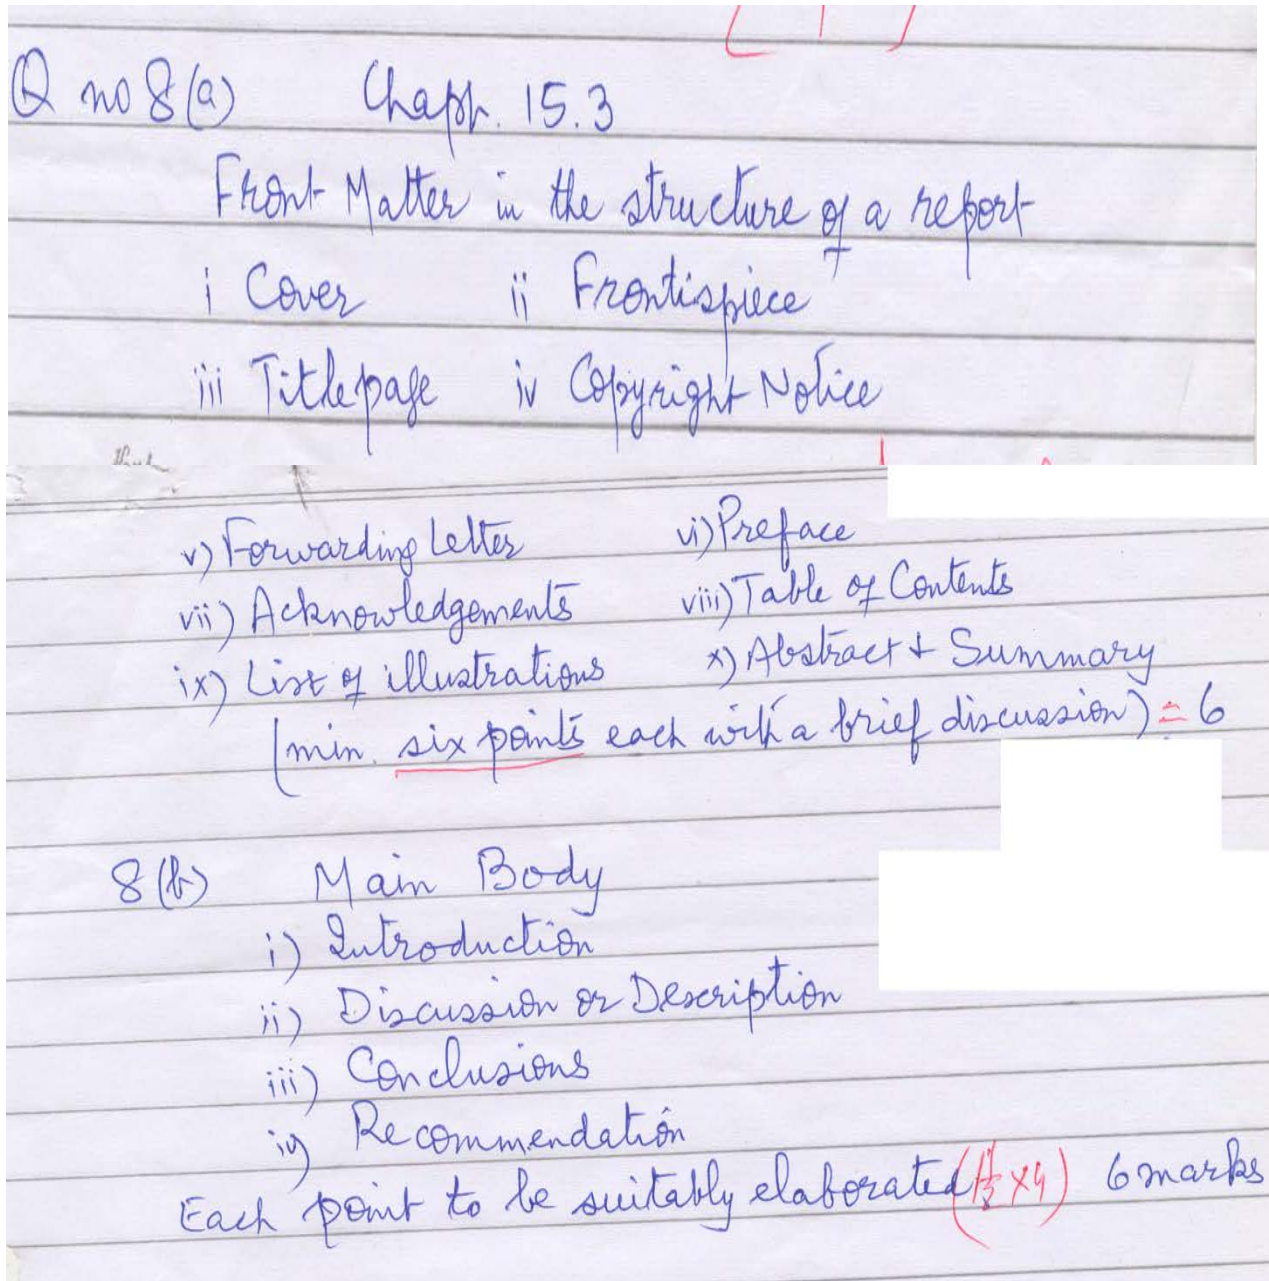 Q no 8(a) Chapt. 15.3
Front Matter in the structure of a report
i Cover ii Frontispiece
iii Titlepage iv Copyright Notice
v) Forwarding Letter vi) Preface
vii) Acknowledgements viii) Table of Contents
ix) List of illustrations x) Abstract + Summary
(min. six points each with a brief discussion) = 6
8(b) Main Body
i) Introduction
ii) Discussion or Description
iii) Conclusions
iv) Recommendation
Each point to be suitably elaborated (1½ x4) 6 marks